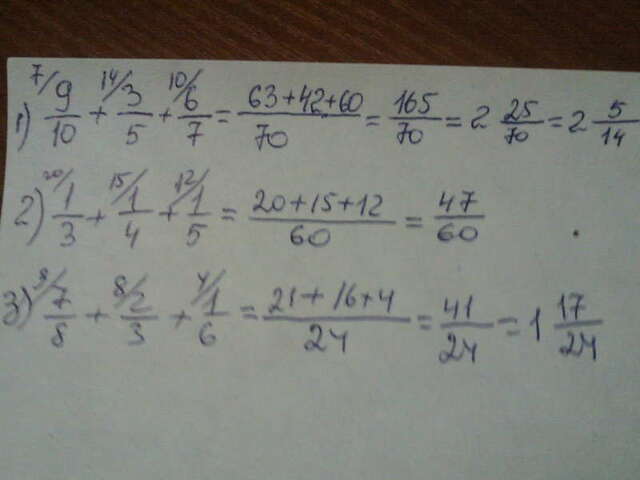 1) ⁷/9/10 + ¹⁴/3/5 + ¹⁰/6/7 = 63+42+60/70 = 165/70 = 2 25/70 = 2 5/14
2) ²⁰/1/3 + ¹⁵/1/4 + ¹²/1/5 = 20+15+12/60 = 47/60
3) /7/8 + ⁸/2/3 + ⁴/1/6 = 21+16+4/24 = 41/24 = 1 17/24